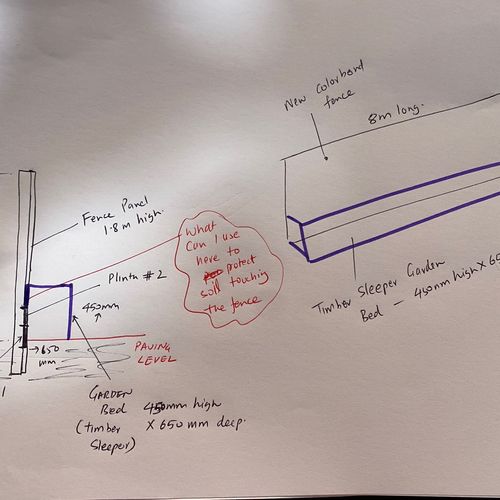 New colorbond
fence
8m long.
Fence Panel
1.8m high.
Plinth #2
450mm
→650
mm
PAVING
LEVEL
What
can I use
here to
protect
soil touching
the fence
Timber Sleeper Garden
Bed - 450mm high X 65
GARDEN
Bed 450mm high
(timber X 650mm deep.
Sleeper)